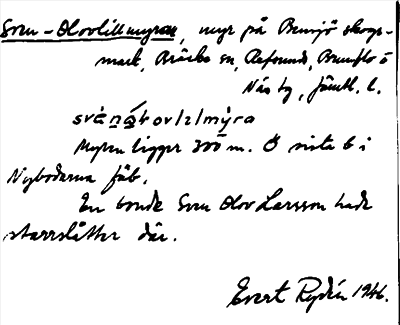 Sven-Olovlillmyran, myr på Bensjö skogs-
mark, Bräcke sn, Refsunds, Brunflo o
Näs tg, Jämtl. l.
Myren ligger 300 m. Ö sista b i
Nybodarna fäb.
En bonde Sven Olov Larsson hade
starrslåtter där.
Evert Rydén 1946.